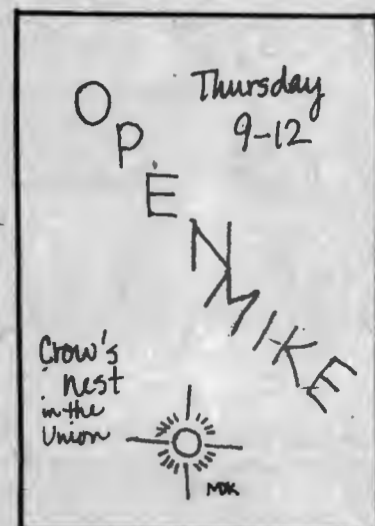 Thursday
9-12
OPEN MIKE
Crow's
nest
in the
Union
MDK